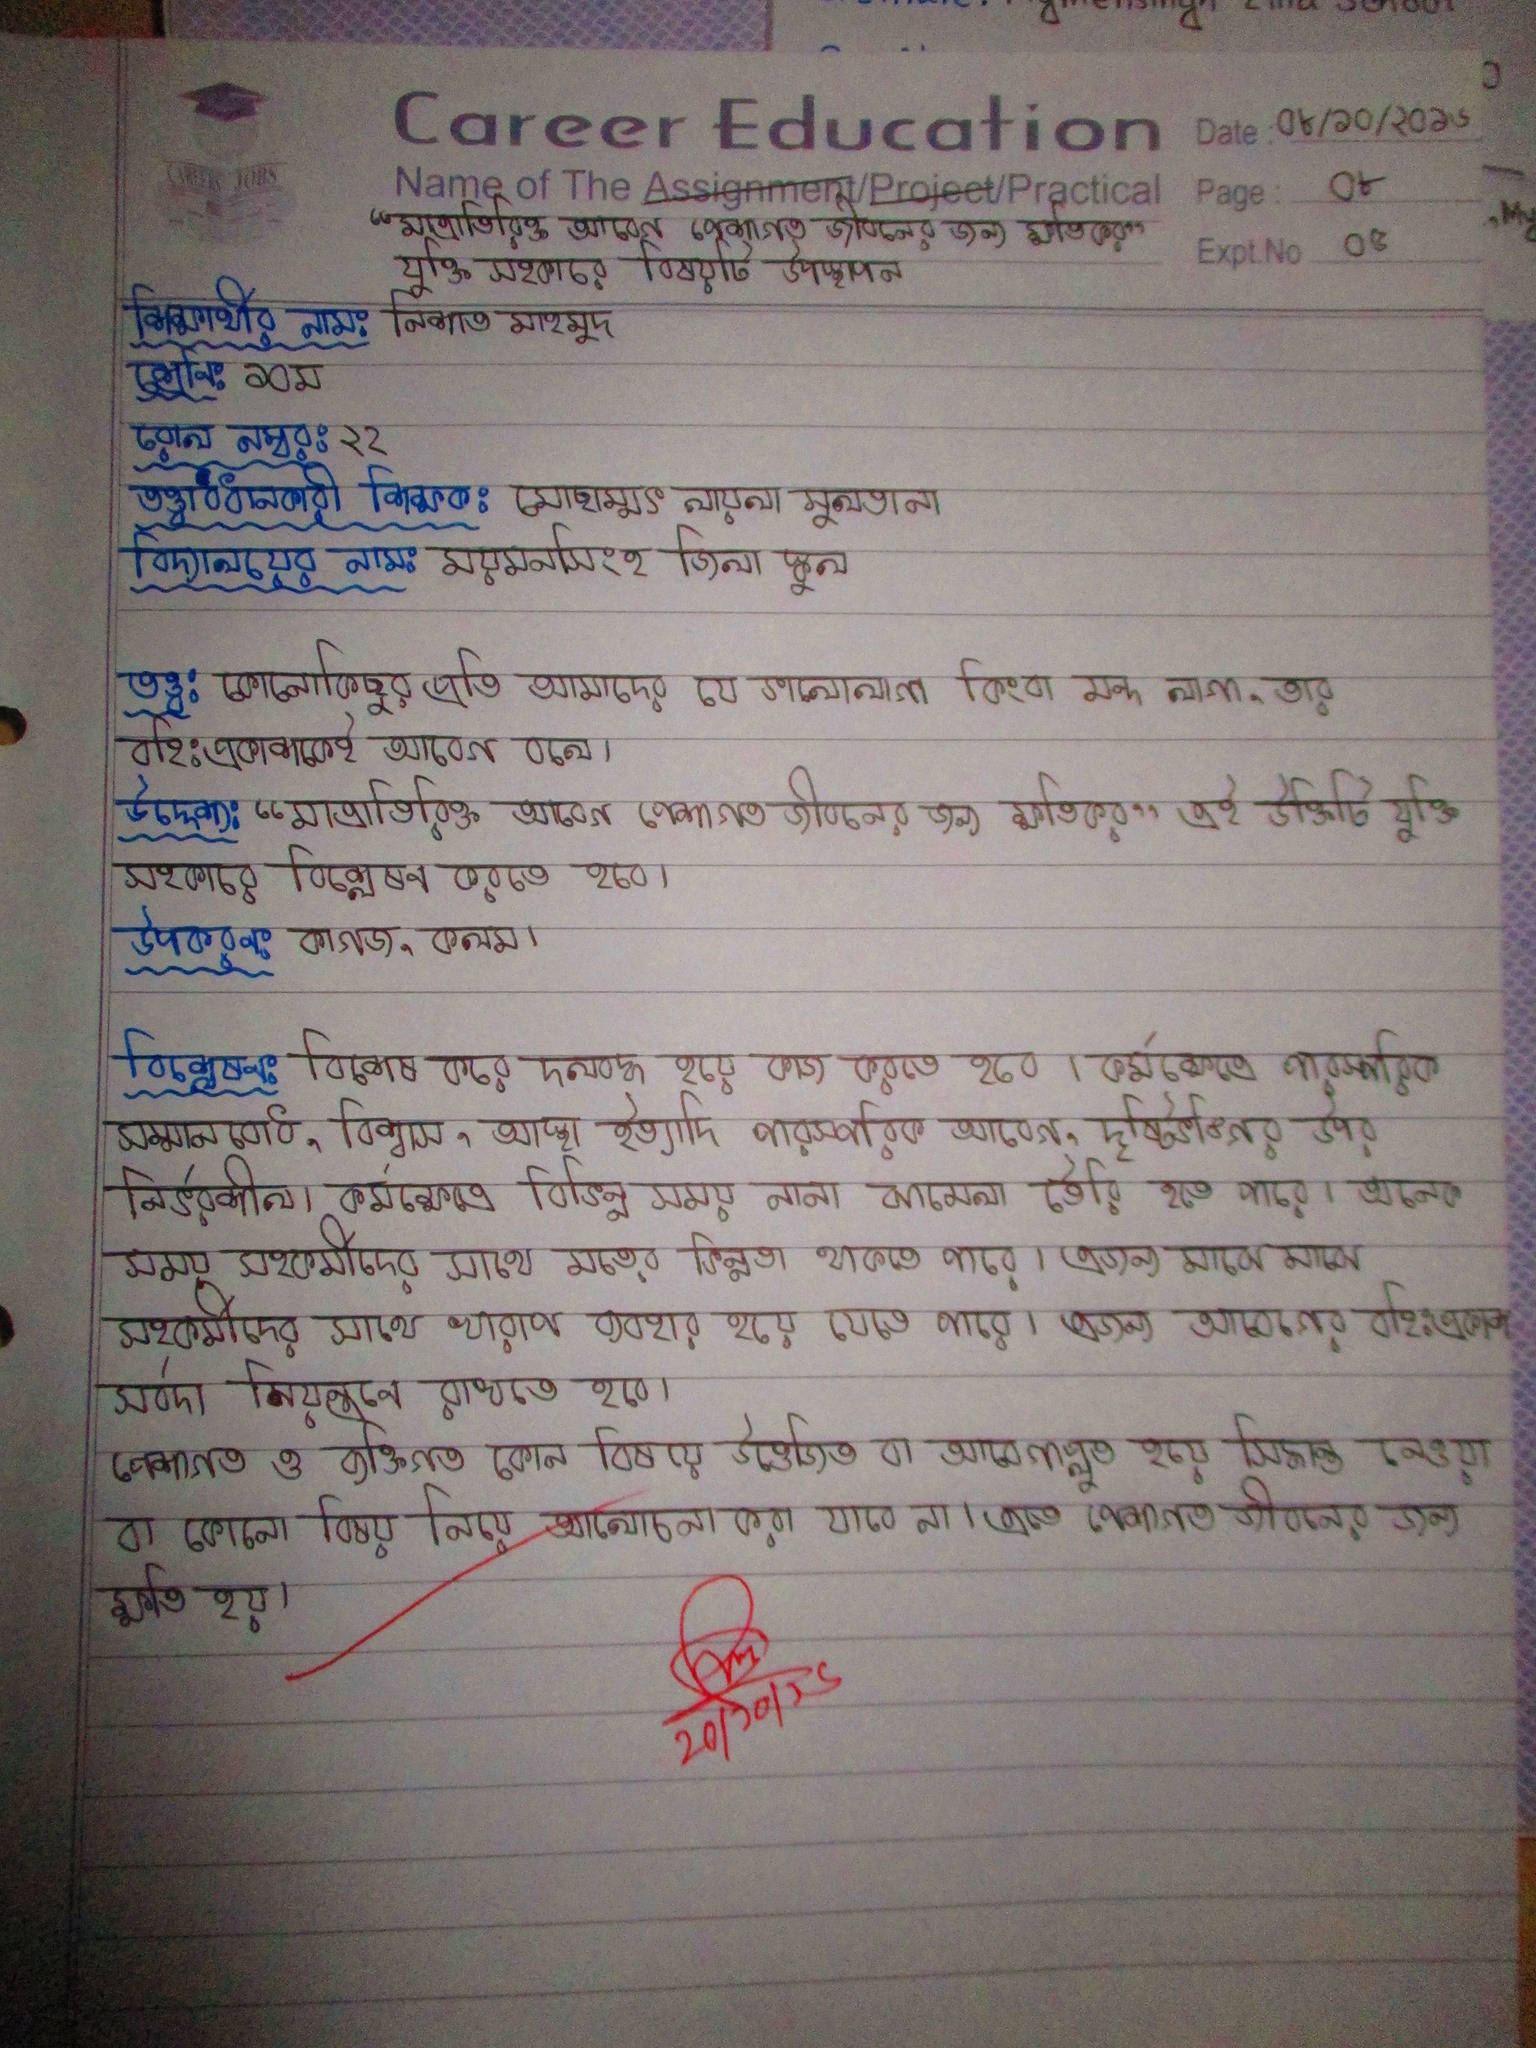 Career Education
Date : ০৮/১০/২০২৫
Name of The Assignment/Project/Practical
Page : ০৮
"মাত্রাতিরিক্ত আবেগ পেশাগত জীবনের জন্য ক্ষতিকর"
যুক্তি সহকারে বিষয়টি উপস্থাপন
Expt.No ০৪
শিক্ষার্থীর নামঃ নিশাত মাহমুদ
শ্রেনিঃ ১০ম
রোল নম্বরঃ ২২
তত্ত্বাবধানকারী শিক্ষকঃ মোছাম্মৎ লায়লা সুলতানা
বিদ্যালয়ের নামঃ ময়মনসিংহ জিলা স্কুল
তত্ত্বঃ কোনোকিছুর প্রতি আমাদের যে ভালোলাগা কিংবা মন্দ লাগা, তার
বহিঃপ্রকাশকেই আবেগ বলে।
উদ্দেশ্যঃ "মাত্রাতিরিক্ত আবেগ পেশাগত জীবনের জন্য ক্ষতিকর" এই উক্তিটি যুক্তি
সহকারে বিশ্লেষন করতে হবে।
উপকরনঃ কাগজ, কলম।
বিশ্লেষনঃ বিশেষ করে দলবদ্ধ হয়ে কাজ করতে হবে। কর্মক্ষেত্রে পারস্পরিক
সম্মানবোধ, বিশ্বাস, আস্থা ইত্যাদি পারস্পরিক আবেগ, দৃষ্টিভঙ্গির উপর
নির্ভরশীল। কর্মক্ষেত্রে বিভিন্ন সময় নানা ঝামেলা তৈরি হতে পারে। অনেক
সময় সহকর্মীদের সাথে মতের ভিন্নতা থাকতে পারে। এজন্য মাঝে মাঝে
সহকর্মীদের সাথে খারাপ ব্যবহার হয়ে যেতে পারে। এজন্য আবেগের বহিঃপ্রকাশ
সর্বদা নিয়ন্ত্রনে রাখতে হবে।
পেশাগত ও ব্যক্তিগত কোন বিষয়ে উত্তেজিত বা আবেগাপ্লুত হয়ে সিদ্ধান্ত নেওয়া
বা কোনো বিষয় নিয়ে আলোচনা করা যাবে না। এতে পেশাগত জীবনের জন্য
ক্ষতি হয়।